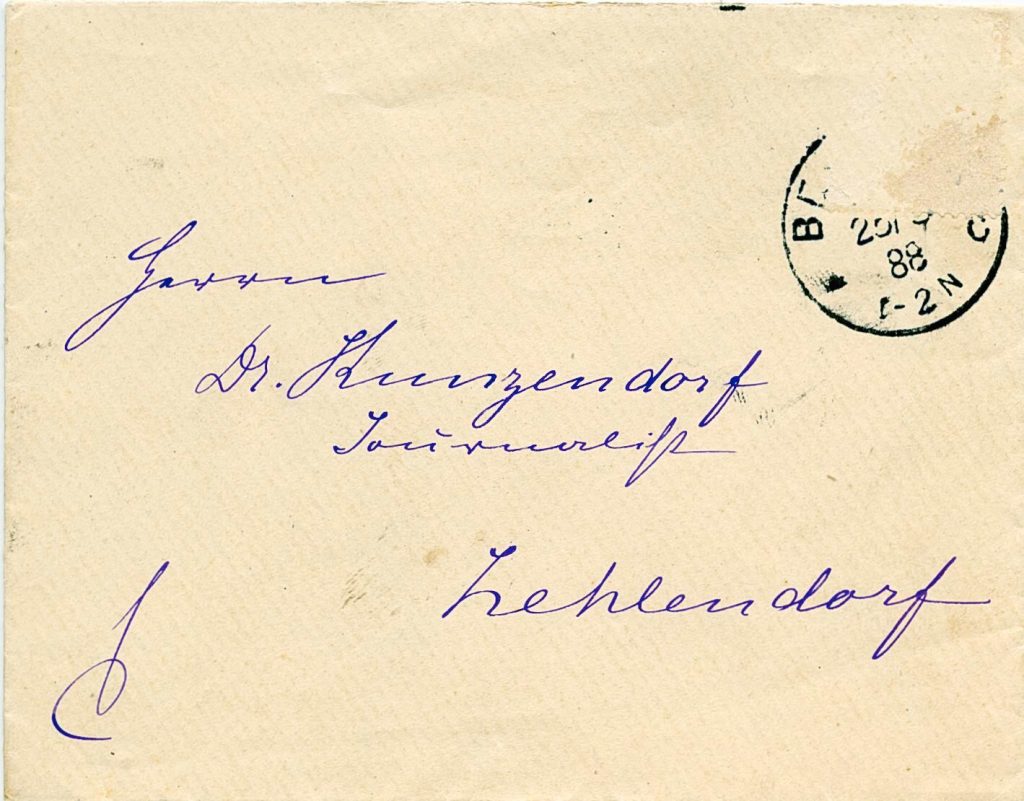 B C
88
-2N
Herrn
Dr. Kunzendorf
Journalist
Zehlendorf